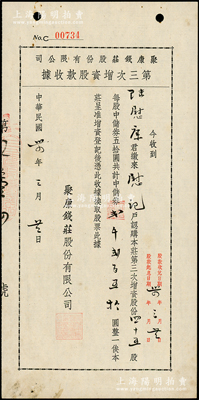 No. C 00734
聚康錢莊股份有限公司
第三次增資股款收據
今收到
慰庭君繳來慰記戶認購本莊第三次增資股份四十五股
每股中儲券五拾圓共計中儲券貳千貳百五拾圓整一俟本
莊呈准增資登記後憑此收據換取股票此據
聚康錢莊股份有限公司
中華民國卅四年三月日
上海陽明拍賣